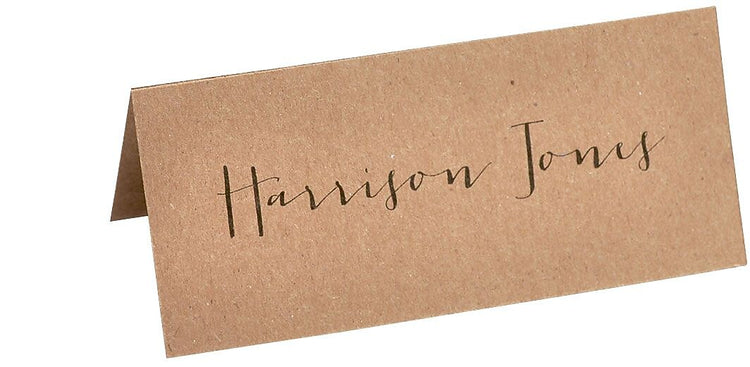 Harrison Jones